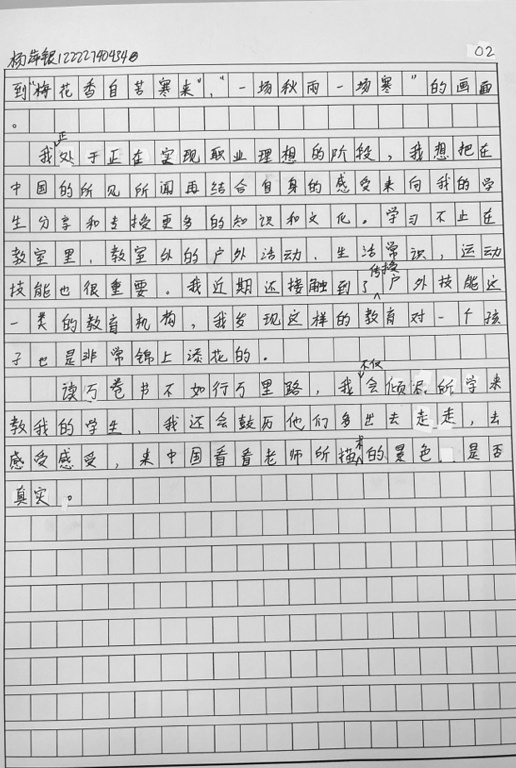 杨萍银12222740434
02
到“梅花香自苦寒来”,“一场秋雨一场寒”的画面
。
正
我处于正在实现职业理想的阶段,我想把在
中国的所见所闻再结合自身的感受来向我的学
生分享和支授更多的知识和文化。学习不止在
教室里、教室外的户外活动、生活常识,运动
技能也很重要。我近期还接触到了传授户外技能这
一类的教育机构,我发现这样的教育对一个孩
子也是非常锦上添花的。
读万卷书不如行万里路,我不仅会倾尽所学来
教我的学生、我还会鼓历他们多出去走走,去
感受感受,来中国看看老师所描术的景色、是否
真实。